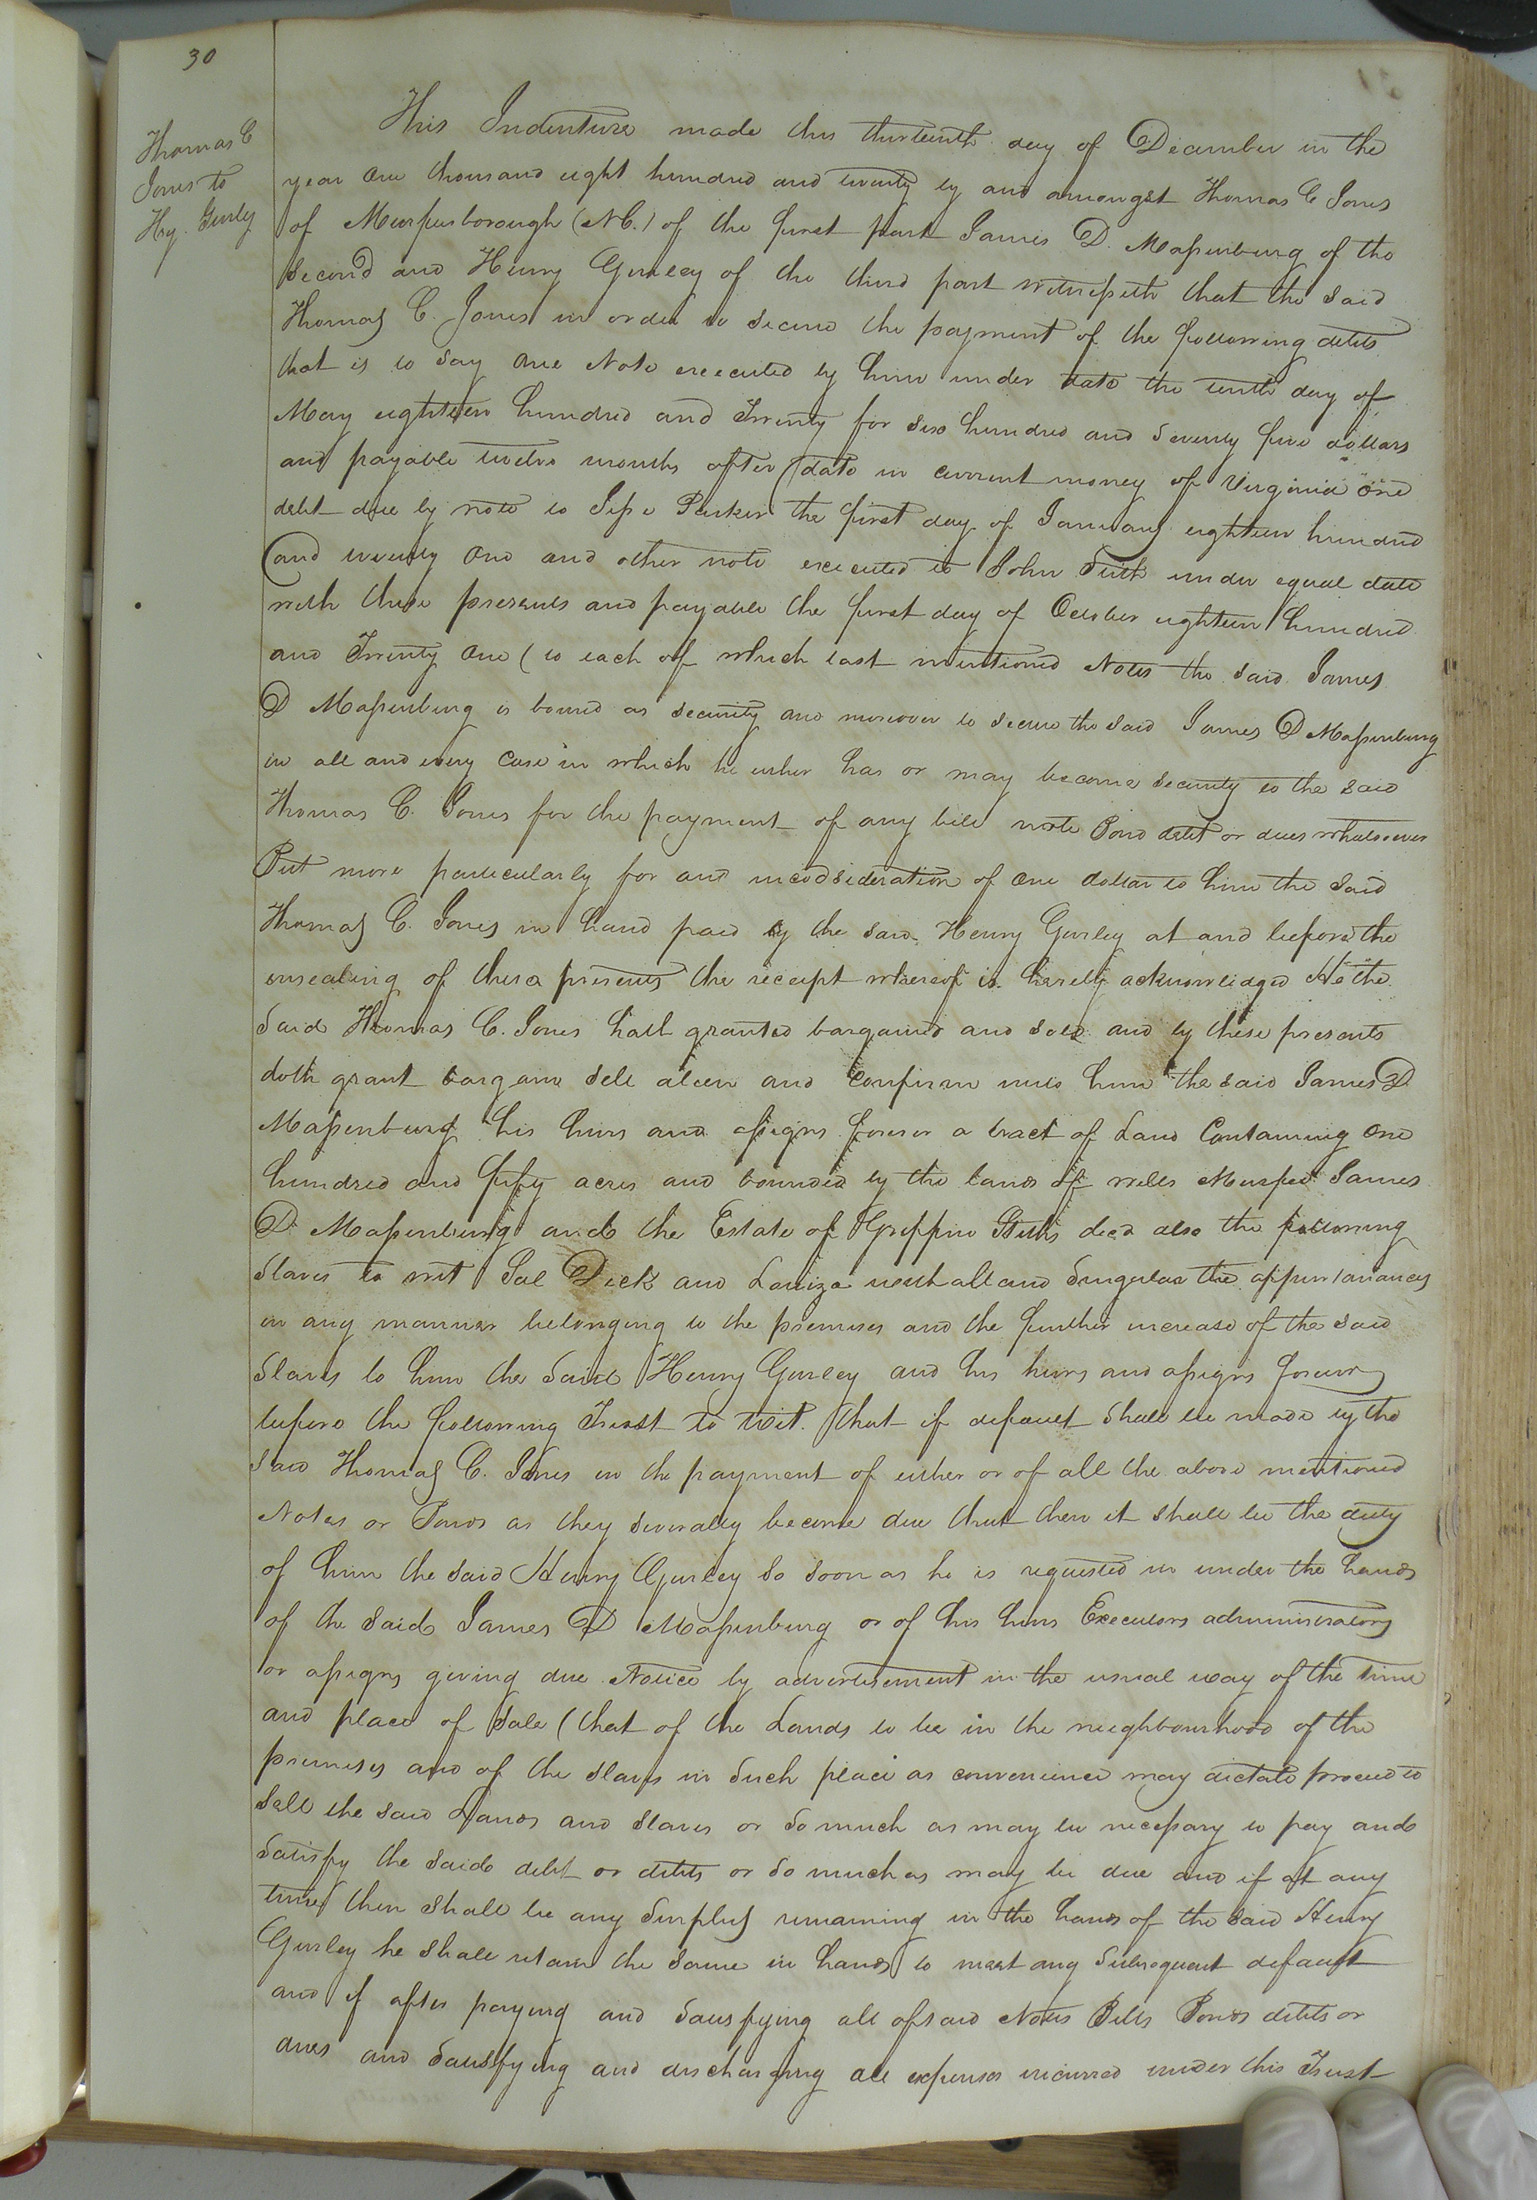 30
Thomas C
Jones to
Hy. Gurley
This Indenture made this thirteenth day of December in the
year one thousand eight hundred and twenty by and amongst Thomas C Jones
of Murfreesborough (N.C.) of the first part James D. Massenburg of the
second and Henry Gurley of the third part witnesseth that the said
Thomas C. Jones in order to secure the payment of the following debts
that is to say one Note executed by him under date the tenth day of
May eighteen hundred and Twenty for six hundred and seventy five dollars
and payable twelve months after date in current money of Virginia one
debt due by note to Jesse Parker the first day of January eighteen hundred
and twenty one and other note executed to John under equal date
with these presents and payable the first day of October eighteen hundred
and Twenty One (to each of which last mentioned Notes the said James
D Massenburg is bound as security and moreover to secure the said James D Massenburg
in all and every case in which he either has or may become security to the said
Thomas C. Jones for the payment of any bill note Bond debt or dues whatsoever
But more particularly for and in consideration of one dollar to him the said
Thomas C. Jones in hand paid by the said Henry Gurley at and before the
ensealing of these presents the receipt whereof is hereby acknowledged He the
said Thomas C. Jones hath granted bargained and sold and by these presents
doth grant bargain sell alien and confirm unto him the said James D
Massenburg his heirs and assigns forever a tract of Land Containing one
hundred and fifty acres and bounded by the lands of James
D. Massenburg and the Estate of decd also the following
Slaves to wit Sal Dick and Louiza with all and Singular the appurtanances
in any manner belonging to the premises and the further increase of the said
Slaves to him the said Henry Gurley and his heirs and assigns forever
before the following Trust to wit. that if default shall be made by the
said Thomas C. Jones in the payment of either or of all the above mentioned
Notes or Bonds as they severally become due that then it shall be the duty
of him the said Henry Gurley so soon as he is requested in under the hands
of the said James D Massenburg or of his heirs Executors administrators
or assigns giving due Notice by advertisement in the usual way of the time
and place of sale (that of the Lands to be in the neighbourhood of the
premises and of the slaves in such place as convenience may dictate proceed to
sell the said Lands and slaves or so much as may be necessary to pay and
satisfy the said debt or debts or so much as may be due and if at any
time then shall be any surplus remaining in the hands of the said Henry
Gurley he shall retain the same in hands to meet any subsequent default
and if after paying and satisfying all of said Notes Bills Bonds debts or
dues and satisfying and discharging all expenses incurred under this Trust